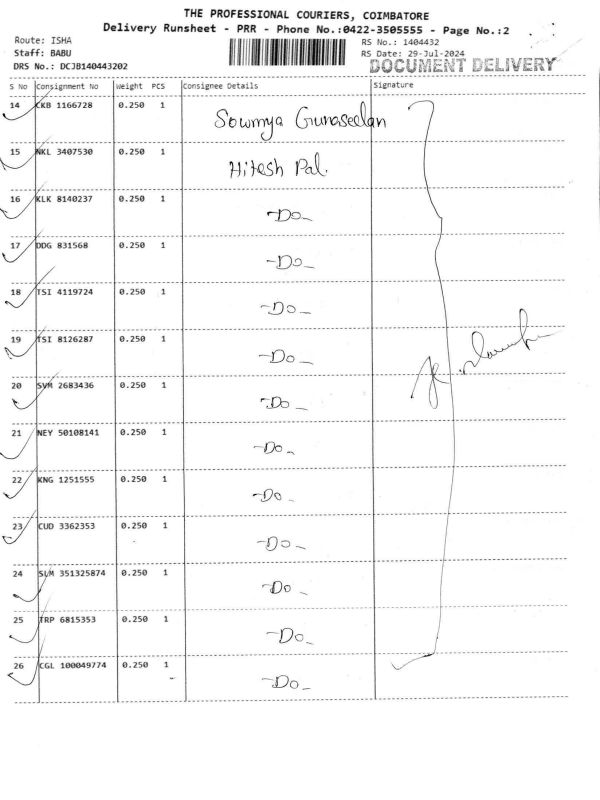 THE PROFESSIONAL COURIERS, COIMBATORE
Delivery Runsheet - PRR - Phone No.:0422-3505555 - Page No.:2
Route: ISHA
Staff: BABU
DRS No.: DCJB140443202
RS No.: 1404432
RS Date: 29-Jul-2024
DOCUMENT DELIVERY
S No Consignment No Weight PCS Consignee Details Signature
14 CKB 1166728 0.250 1 Sowmya Gunaseelan
15 NKL 3407530 0.250 1 Hitesh Pal.
16 KLK 8140237 0.250 1 -Do-
17 DDG 831568 0.250 1 -Do-
18 TSI 4119724 0.250 1 -Do-
19 TSI 8126287 0.250 1 -Do-
20 SVM 2683436 0.250 1 -Do-
21 NEY 50108141 0.250 1 -Do-
22 KNG 1251555 0.250 1 -Do-
23 CUD 3362353 0.250 1 -Do-
24 SLM 351325874 0.250 1 -Do-
25 TRP 6815353 0.250 1 -Do-
26 CGL 100049774 0.250 1 -Do-